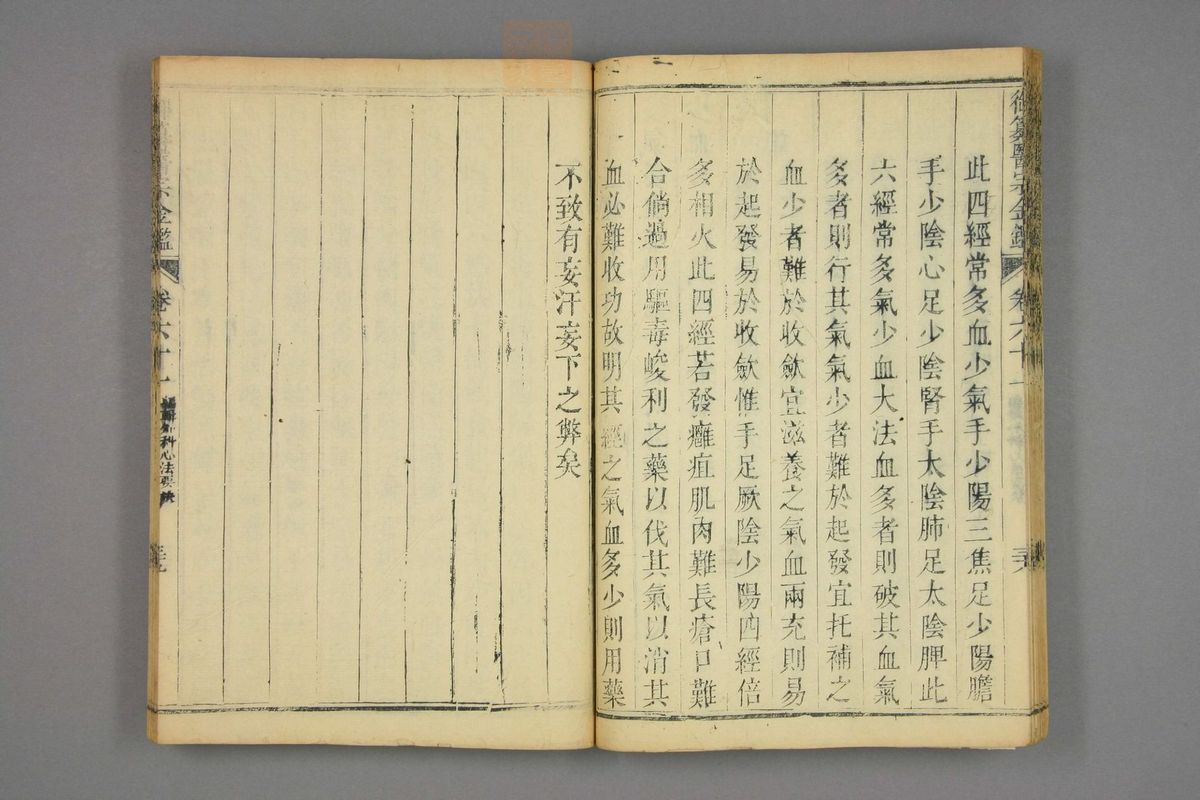 御纂醫宗金鑑 卷六十一 三六
此四經常多血少氣手少陽三焦足少陽膽
手少陰心足少陰腎手太陰肺足太陰脾此
六經常多氣少血大法血多者則破其血氣
多者則行其氣氣少者難於起發宜托補之
血少者難於收斂宜滋養之氣血兩充則易
於起發易於收斂惟手足厥陰少陽四經倍
多相火此四經若發癰疽肌肉難長瘡口難
合倘過用驅毒峻利之藥以伐其氣以消其
血必難收功故明其經之氣血多少則用藥
不致有妄汗妄下之弊矣
宗金鑑 卷六十一 編輯外科心法要訣